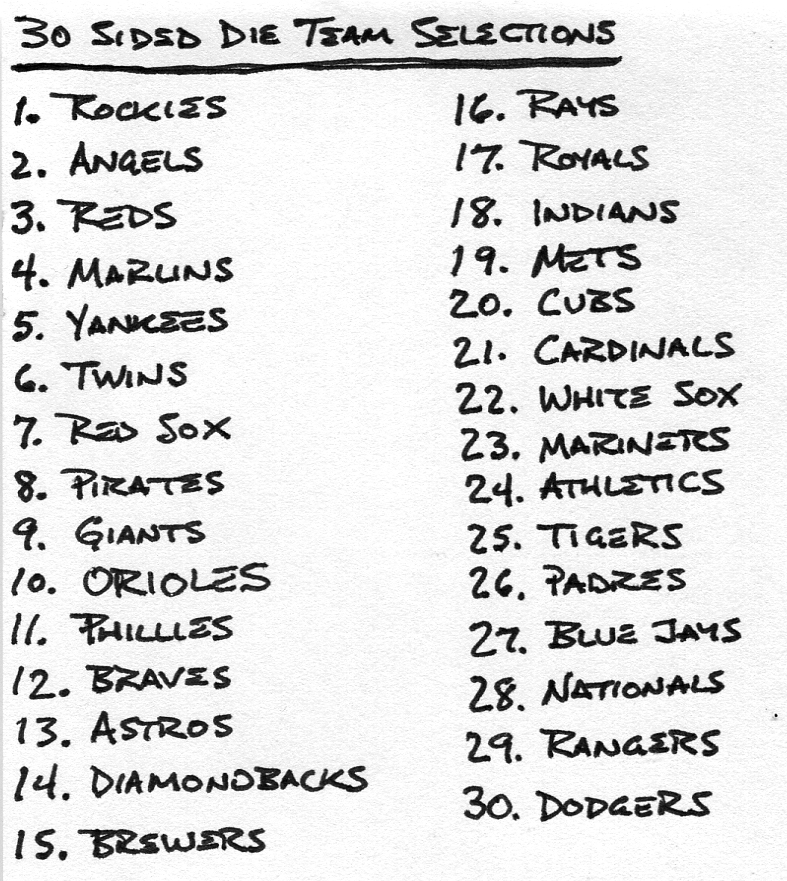 30 SIDED DIE TEAM SELECTIONS
1. ROCKIES
2. ANGELS
3. REDS
4. MARLINS
5. YANKEES
6. TWINS
7. RED SOX
8. PIRATES
9. GIANTS
10. ORIOLES
11. PHILLIES
12. BRAVES
13. ASTROS
14. DIAMONDBACKS
15. BREWERS
16. RAYS
17. ROYALS
18. INDIANS
19. METS
20. CUBS
21. CARDINALS
22. WHITE SOX
23. MARINERS
24. ATHLETICS
25. TIGERS
26. PADRES
27. BLUE JAYS
28. NATIONALS
29. RANGERS
30. DODGERS